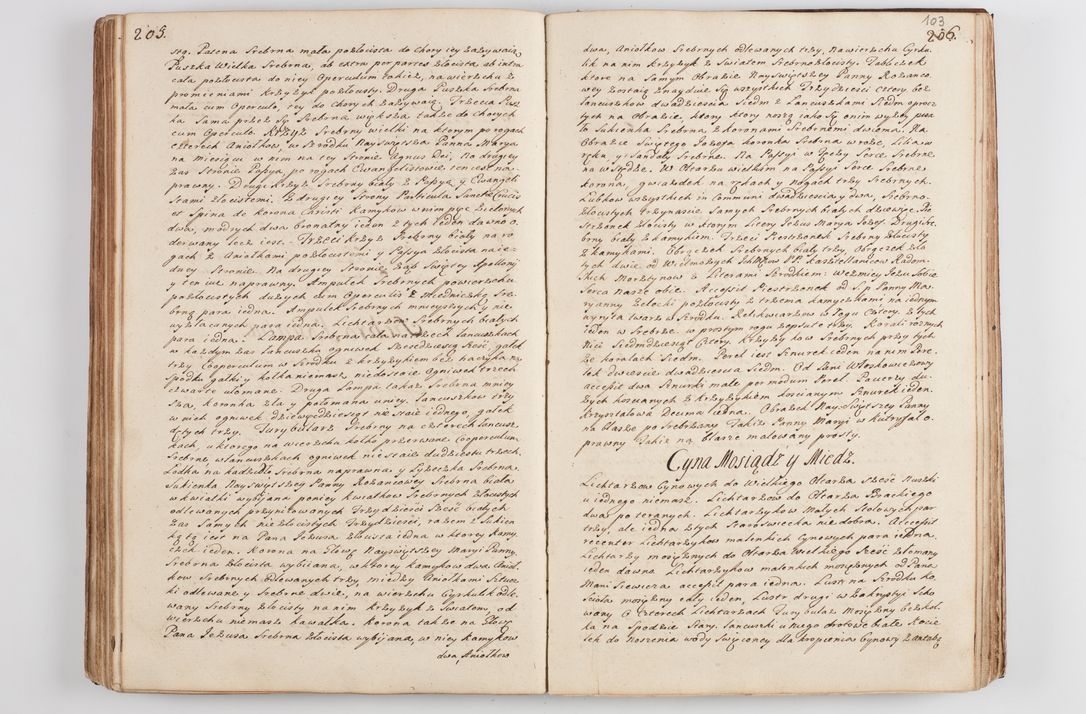 205.
Patena Srebrna mała pozłocista do chorych zażywaią
Puszka Wielka Srebrna, ab extra per partes złocista ab intra
cała pozłocista do niey Operculum takież, na wierzchu z
promieniami Krzyżyk pozłocisty. Druga Puszka Srebrna
mała cum Operculo, tey do chorych zażywaią. Trzecia Pusz
ka Sama przez Się Srebrna większa także do chorych
cum Operculo. Krzyż Srebrny wielki na ktorym po rogach
czterech Aniołkow, w Srodku Nayswiętsza Panna Marya
na Miesiącu w nim na tey Stronie Agnus Dei, Na drugiey
zas Stronie Passya, po rogach Ewangelistowie ten iest na-
prawny. Drugi Krzyż Srebrny biały z Passyą y Ewangeli
stami złocistemi. Z drugiey Strony Particula Sanctæ Crucis
et Spina de korona Christi Kamykow w nim pięć Zielonych
dwa, modrych dwa bronatny ieden z tych ieden dawno o-
derwany lecz iest. Trzeci Krzyż Srebrny biały na ro
gach z Aniołkami pozłocistemi y Passya złocista na ie-
dney Stronie. Na drugiey Stronie Ząb Swiętey Apollonij
y ten iuż naprawny. Ampułek Srebrnych powierzchu
pozłocistych dużych cum Operculis z Miedniczką Sre-
brną para iedna. Ampułek Srebrnych mnieyszych y nie
wyzłacanych para iedna. Lichtarzow Srebrnych białych
para iedna. Lampa Srebrna cała na trzech łancuszkach
w każdym zas łancuszku ogniwek Szesdziesiąt Szesć, gałek
trzy Cooperculum w Srodku z krzyżykiem bez haczyka na
Spodku gałki y kołka niemasz niedostaie Ogniwek trzech
czwarte ułomane. Druga Lampa także Srebrna mniey
sza, koronka zła y połomana u niey. Łancuszkow trzy
w nich ogniwek dziewiędziesiąt nie staie iednego, gałek
dętych trzy. Turybularz Srebrny na czterech łancusz-
kach, u ktorego na wierzchu kołko przerwane Cooperculum
Srebrne, w łancuszkach ogniwek nie staie dudziestu trzech.
Łodka na kadzidło Srebrna naprawna y Łyżeczka Srebrna.
Sukienka Nayswiętszey Panny Rożancowey Srebrna biała
w kwiatki wybijana poniey kwiatkow Srebrnych złocistych
odlewanych przynitowanych Trzydziesci Szesć białych
zas Samych nie złocistych Trzydziesci, razem z Sukien
ką tą iest na Pana Jezusa złocista iedna w ktorey kamy
czek ieden. Korona na Głowę Nayswiętszey Maryi Panny,
Srebrna złocista wybiiana, w ktorey kamykow dwa Anioł
kow Srebrnych odlewanych trzy, miedzy Aniołkami Sztucz
ki odlewane y Srebrne dwie, na wierzchu Cyrkulik odle-
wany Srebrny złocisty na nim krzyżyk z Swiatem, od
wierzchu niemasz kawałka. Korona także na Głowę
Pana Jezusa Srebrna złocista wybijana, w niey kamykow
dwa, Aniołkow
103
206.
dwa, Aniołkow Srebrnych odlewanych trzy, na wierzchu Cyrku
lik na nim krzyżyk z Swiatem Srebrnozłocisty. Tabliczek
ktore na Samym Obrazie Nayswiętszey Panny Rożanco
wey zostaią Znayduie Się wszystkich Trzydziesci cztery, bez
łancuszkow dwadziescia Siedm z Łancuszkami Siedm oprocz
tych na Obrazie, ktory ktory noszą iako Się o nim wyżey pisa
ło Sukienka Srebrna z Koronami Srebrnemi dwiema. Na
Obrazie Swiętego Jozefa koronka Srebrna w roże, Lilia w
ręku y Sandały Srebrne. Na Passyi w Tęczy Serce Srebrne
na w Spodze. W Ołtarzu wielkim na Passyi Serce Srebrne
korona, gwozdek na rękach y nogach trzy Srebrnych.
Lubkow wszystkich in Communi dwadziescia y dwa, Srebrno-
złocistych trzynascie Samych Srebrnych białych dziewięć. Pie
strzonek złocisty w ktorym litery Jezus Marya Jozef Drugi Sre
brny biały z kamykiem. Trzeci Piestrzonek Srebrny złocisty
z kamykami. Obrączek Srebrnych białych trzy Obrączek zło
tych dwie od Wielmożnych Ichmciow PP. Kasztellanicow Radom-
skich Morsztynow z Literami Srodkiem: Weźmicy Jezu Sobie
Serca nasze obie. Accepit Piestrzonek od S.p. Panny Ma-
ryanny Zelocki pozłocisty z trzema kamyczkami na iednym
wyryta twarz w Srodku. Relikwiarzow w Jogu cztery, z tych
ieden w Srebrze. w prostym rogu zapsute trzy. Korali rożnych
Nici Siedmdziesiąt Cztery, krzyżykow Srebrnych przy tych
ze koralach Siedm. Pereł iest Sznurek ieden na nim Pere-
łek dwiescie dwadziescia Siedm. Od Pani Woskowiczowy
accepit dwa Sznurki małe per modum Pereł. Pacierzy du-
żych koscianych z krzyżykiem koscianym Sznurek ieden.
Krzyształowa Decima iedna. Obrazek Nayswiętszey Panny
na blasze po Srebrzany Także Panny Maryi w Kutryfal o-
prawny Także na blasze malowany prosty.
Cyna Mosiądz y Miedź.
Lichtarzow Cynowych do Wielkiego Ołtarza Szesć Nuszki
u iednego niemasz. Lichtarzow do Ołtarza Brackiego
dwa po teranych. Lichtarzykow Małych Stołowych par
trzy, ale iedna z tych Staroswiecka nie dobra. Accepit
recenter Lichtarzykow malenkich Cynowych para iedna.
Lichtarzy mosiężnych do Ołtarza Wielkiego Szesć złomany
ieden dawno Lichtarzykow malenkich mosiężnych od Pana
Mani Siewicza accepit para iedna. Lustr na Srodku ko-
scioła mosiężny cały ieden, Lustr drugi w Zakrystyi Scho
wany O czterech Lichtarzach Turybularz Mosiężny bez koł-
ka na Spodzie Stary, łancuszki u niego drotowe białe Kocie
łek do Noszenia wody Swięconey dla kropienia Cynowy z antabą